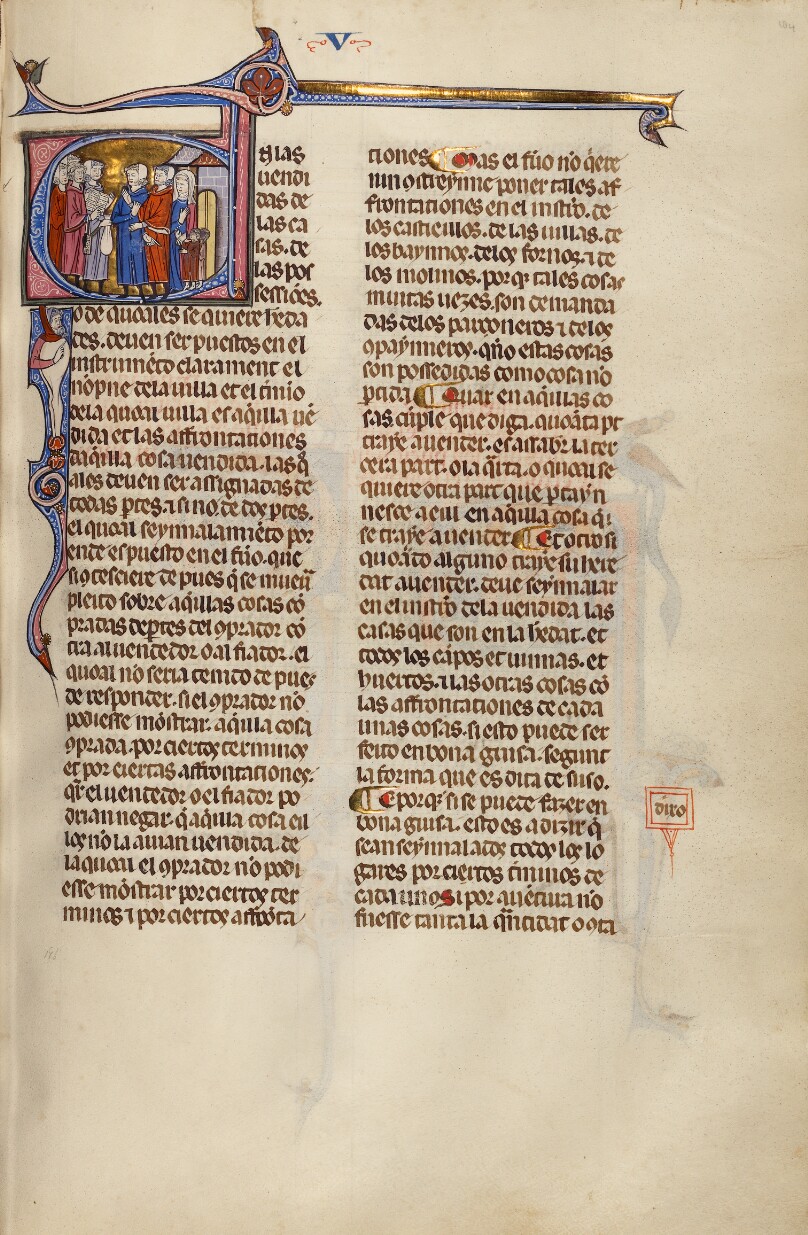 V
E las
uendi
das de
las ca
sas. de
las pos
sessiões.
o de quoales se quiere h̃eda
des. deuen ser puestos en el
instrumẽto clarament el
nõpne dela uilla et el t̃mio
dela quoal uilla es aq̃lla uẽ
dida et las affrontationes
daq̃lla cosa uendida. las q̃
ales deuen ser assignadas de
todas p̃tes. a si no de dos p̃tes.
el quoal seynnalamiẽto por
ende es puesto en el fũo. que
si
pleito sobre aq̃llas cosas cõ
pradas dep̃tes del ꝯprador cõ
tra al uendedor o al fiador. el
quoal no seria tenido de pues
de responder. si el ꝯprador nõ
podiesse mõstrar. aq̃lla cosa
ꝯprada. por ciertos terminos
et por ciertas affrontationes.
qr̃ el uendedor o el fiador po
drian negar. q̃ aq̃lla cosa eil
los nõ la auian uendida. de
la quoal el ꝯprador nõ podi
esse mõstrar por ciertos ter
minos ⁊ por ciertos affrõta
tiones. Mas el fũo nõ q̃ere
nin ꝯstreynne poner tales af
frontationes en el instr̃o. de
los castieillos. de las uillas. de
los baynnos. delos fornos. ⁊ de
los molinos. porq̃ tales cosas
muitas uezes. son demanda
das delos parçoneros ⁊ delos
ꝯpaynneros. q̃ño estas cosas
son possedidas como cosa nõ
ptida. Quar en aq̃llas co
sas cũple que diga. quoãta pt
traye a uender. es assabr̃ la ter
cera part. o la q̃rta. o quoal se
quiere otra part que ptayn
nesce a eill en aq̃lla cosa q̃
se traye a uender. Et otro si
quoãdo alguno traye su here
dat a uender. deue seynnalar
en el instr̃o dela uendida las
casas que son en la h̃edat. et
todos los cãpos et uinnas. et
huertos. ⁊ las otras cosas cõ
las affrontationes de cada
unas cosas. si esto puede ser
feito en bona guisa. segunt
la forma que es dita de suso.
Et porq̃ si se puede fazer en
bona guisa. esto es a dizir q̃
sean seynnalados todos los lo
gares por ciertos t̃minos de
cada unos. ⁊ por auẽtura nõ
fuesse tanta la q̃ntidat o ꝯta
diro